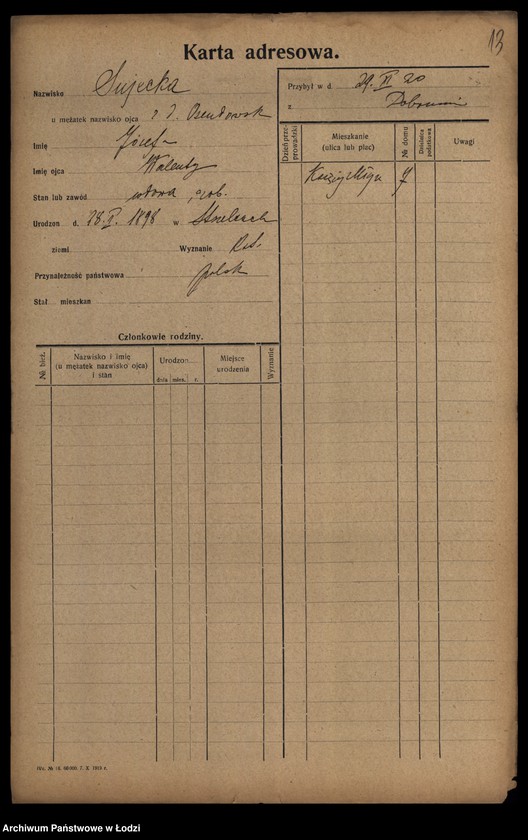 13
Karta adresowa.
Nazwisko Sujecka
u mężatek nazwisko ojca z d.
Imię Józefa
Imię ojca Walenty
Stan lub zawód wdowa rob.
Urodzon d. 1898 w
ziemi Wyznanie
Przynależność państwowa polsk
Stał. mieszkan
Przybył w d. 29. VI 20
z
Dzień prze-
prowadzki
Mieszkanie
(ulica lub plac)
№ domu
Dzielnica
podatkowa
Uwagi
7
Członkowie rodziny.
№ bież.
Nazwisko i Imię
(u mężatek nazwisko ojca)
i stan
Urodzon
dnia mies. r.
Miejsce
urodzenia
Wyznanie
Wz. № 16. 60.000. 7. X. 1919 r.
Archiwum Państwowe w Łodzi